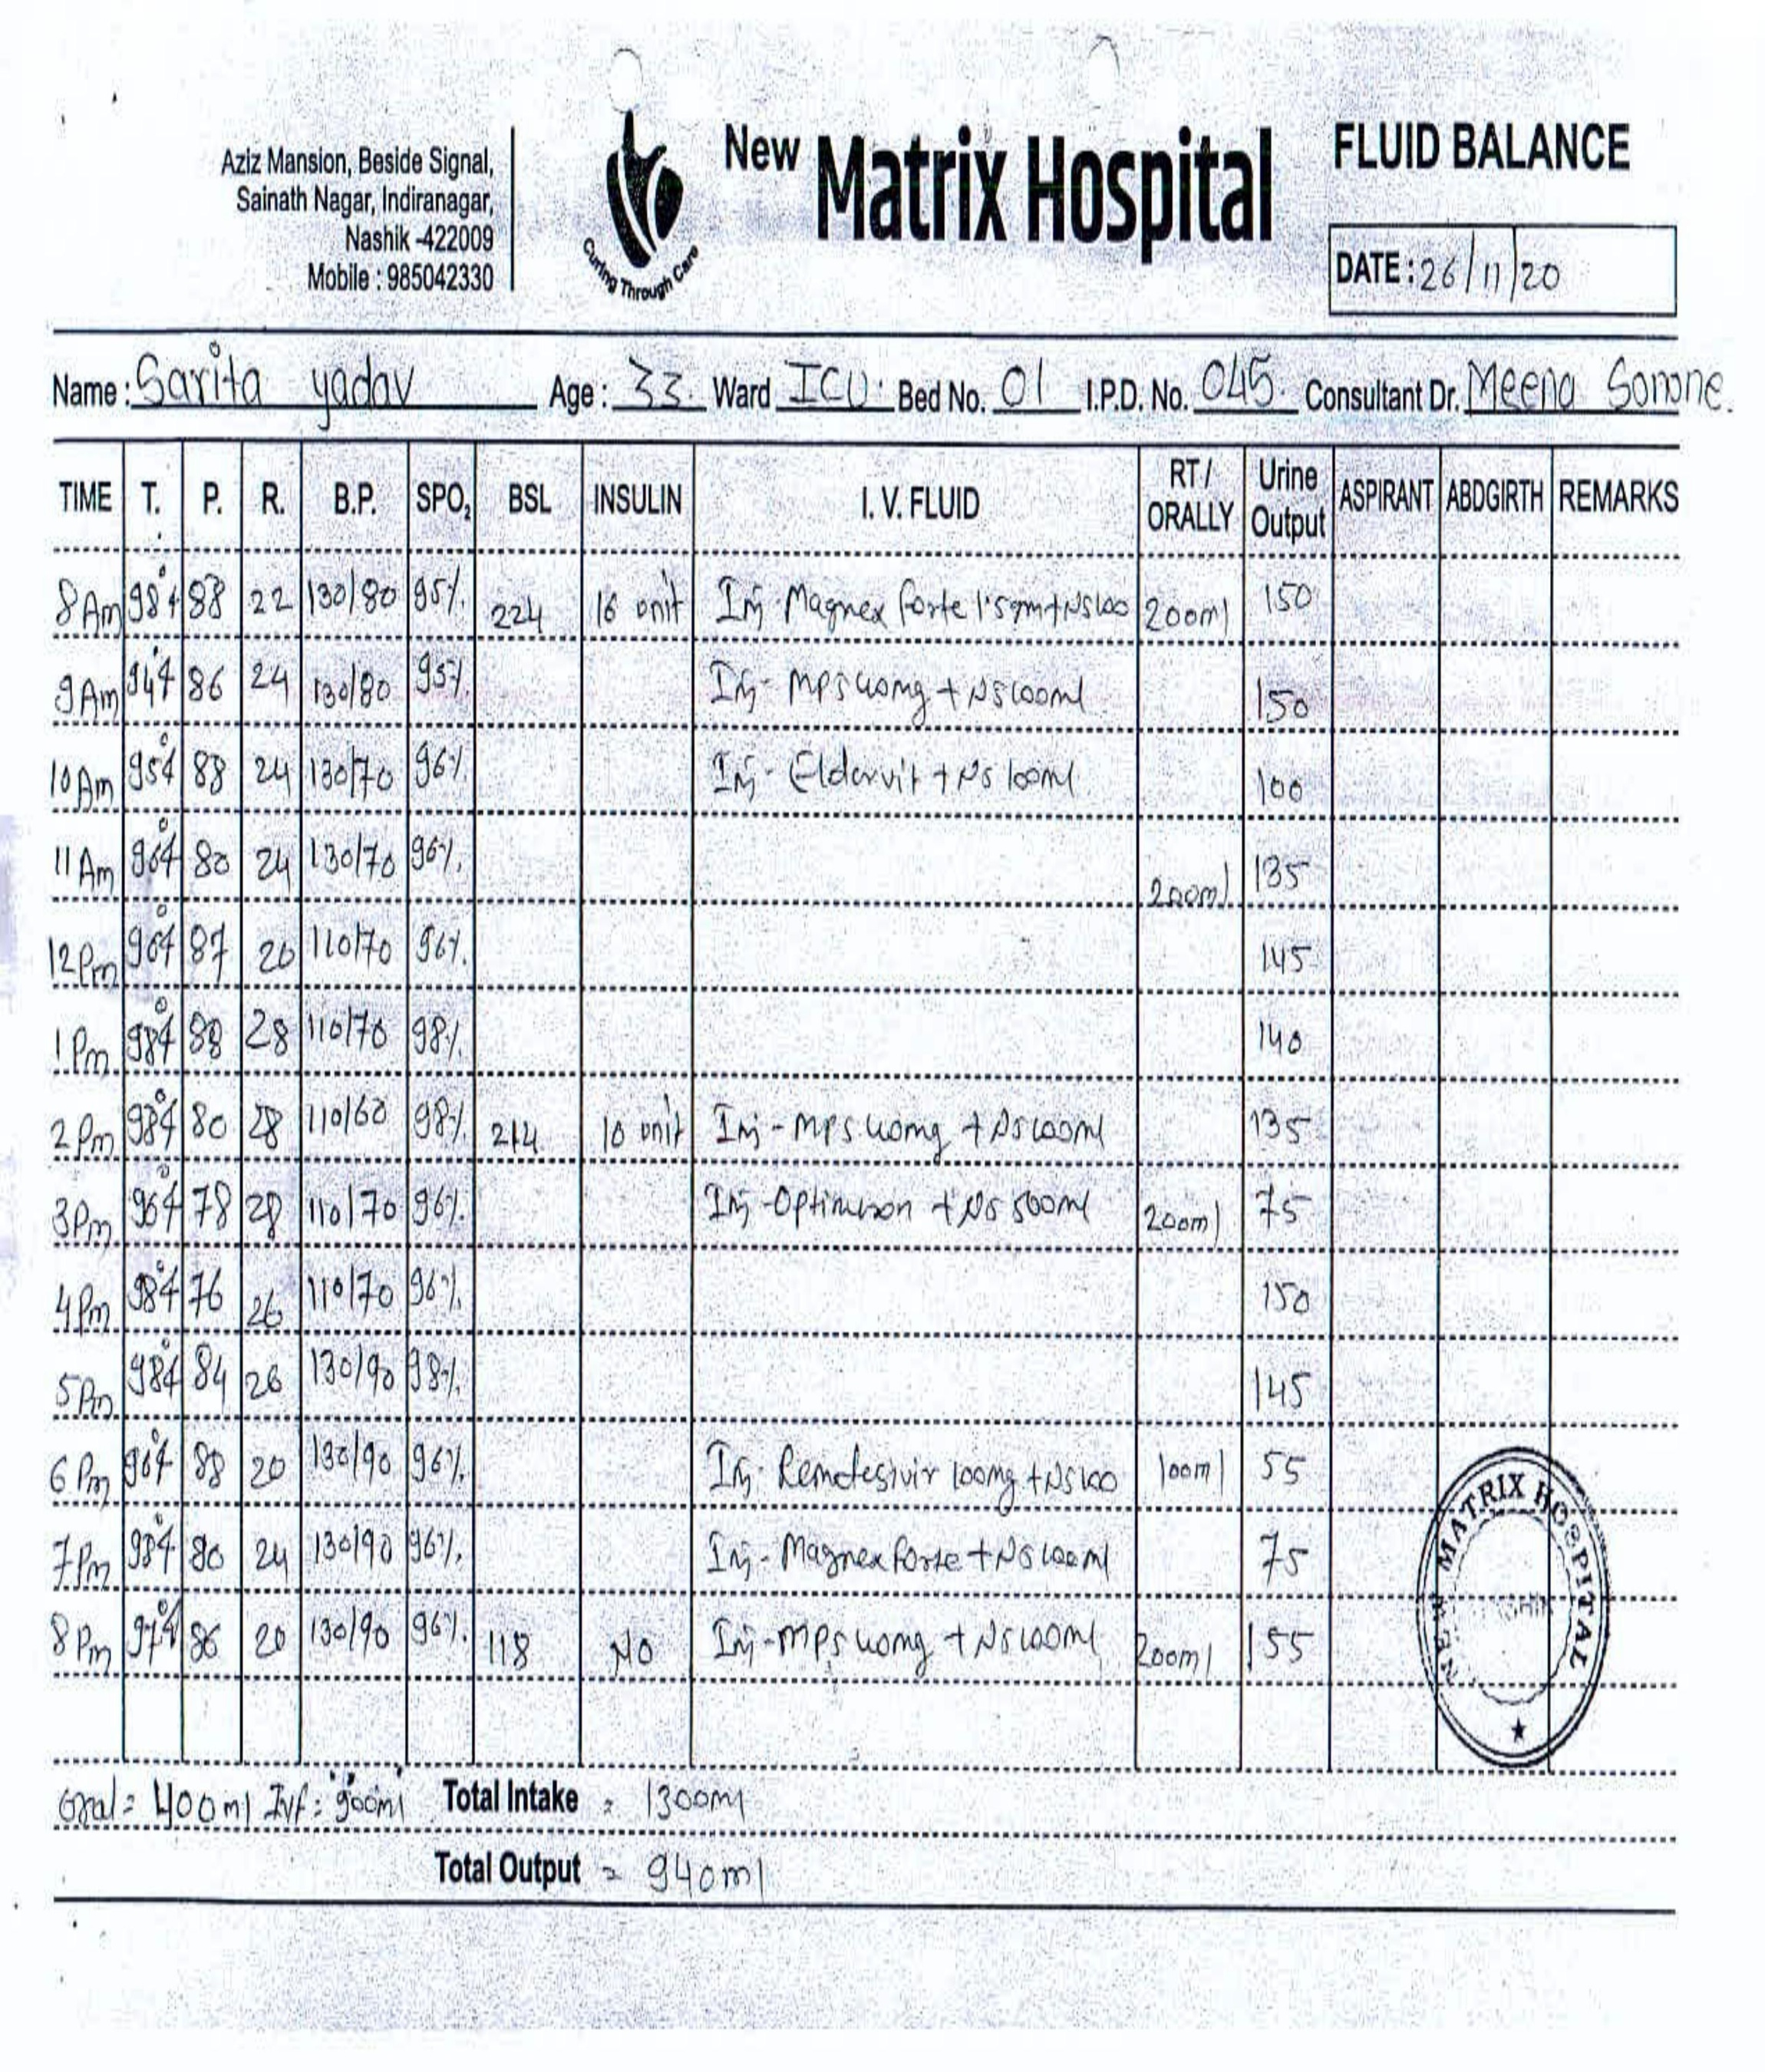 Aziz Mansion, Beside Signal,
Sainath Nagar, Indiranagar,
Nashik -422009
Mobile : 985042330
Curing Through Care
New Matrix Hospital
FLUID BALANCE
DATE : 26/11/20
Name : Sarita yadav Age : 33. Ward ICU Bed No. 01 I.P.D. No. 045. Consultant Dr. Meena Sonone.
TIME T. P. R. B.P. SPO2 BSL INSULIN I. V. FLUID RT / ORALLY Urine Output ASPIRANT ABDGIRTH REMARKS
8 Am 98°f 88 22 130/80 95%. 224 16 unit Inj- Magnex forte 1.5gm+NS100 200ml 150
9 Am 94°f 86 24 130/80 95%. Inj- MPS 40mg + NS100ml 150
10 Am 95°f 88 24 130/70 96%. Inj- Eldervit + NS 100ml. 100
11 Am 96°f 80 24 130/70 96%. 200ml 135
12 Pm 96°f 87 26 110/70 96%. 145
1 Pm 98°f 88 28 110/70 98%. 140
2 Pm 98°f 80 28 110/60 98%. 214 10 unit Inj- MPS 40mg + NS100ml 135
3 Pm 96°f 78 28 110/70 96%. Inj- + NS 500ml 200ml 75
4 Pm 98°f 76 26 110/70 96%. 150
5 Pm 98°f 84 26 130/90 98%. 145
6 Pm 96°f 88 20 130/90 96%. Inj- Remdesivir 100mg + NS100 100ml 55
7 Pm 98°f 80 24 130/90 96%. Inj- Magnex forte + NS 100ml 75
8 Pm 97°f 86 20 130/90 96%. 118 NO Inj- MPS 40mg + NS100ml 200ml 155
NEW MATRIX HOSPITAL
Oral = 400ml Ivf: 900ml Total Intake = 1300ml
Total Output = 940ml